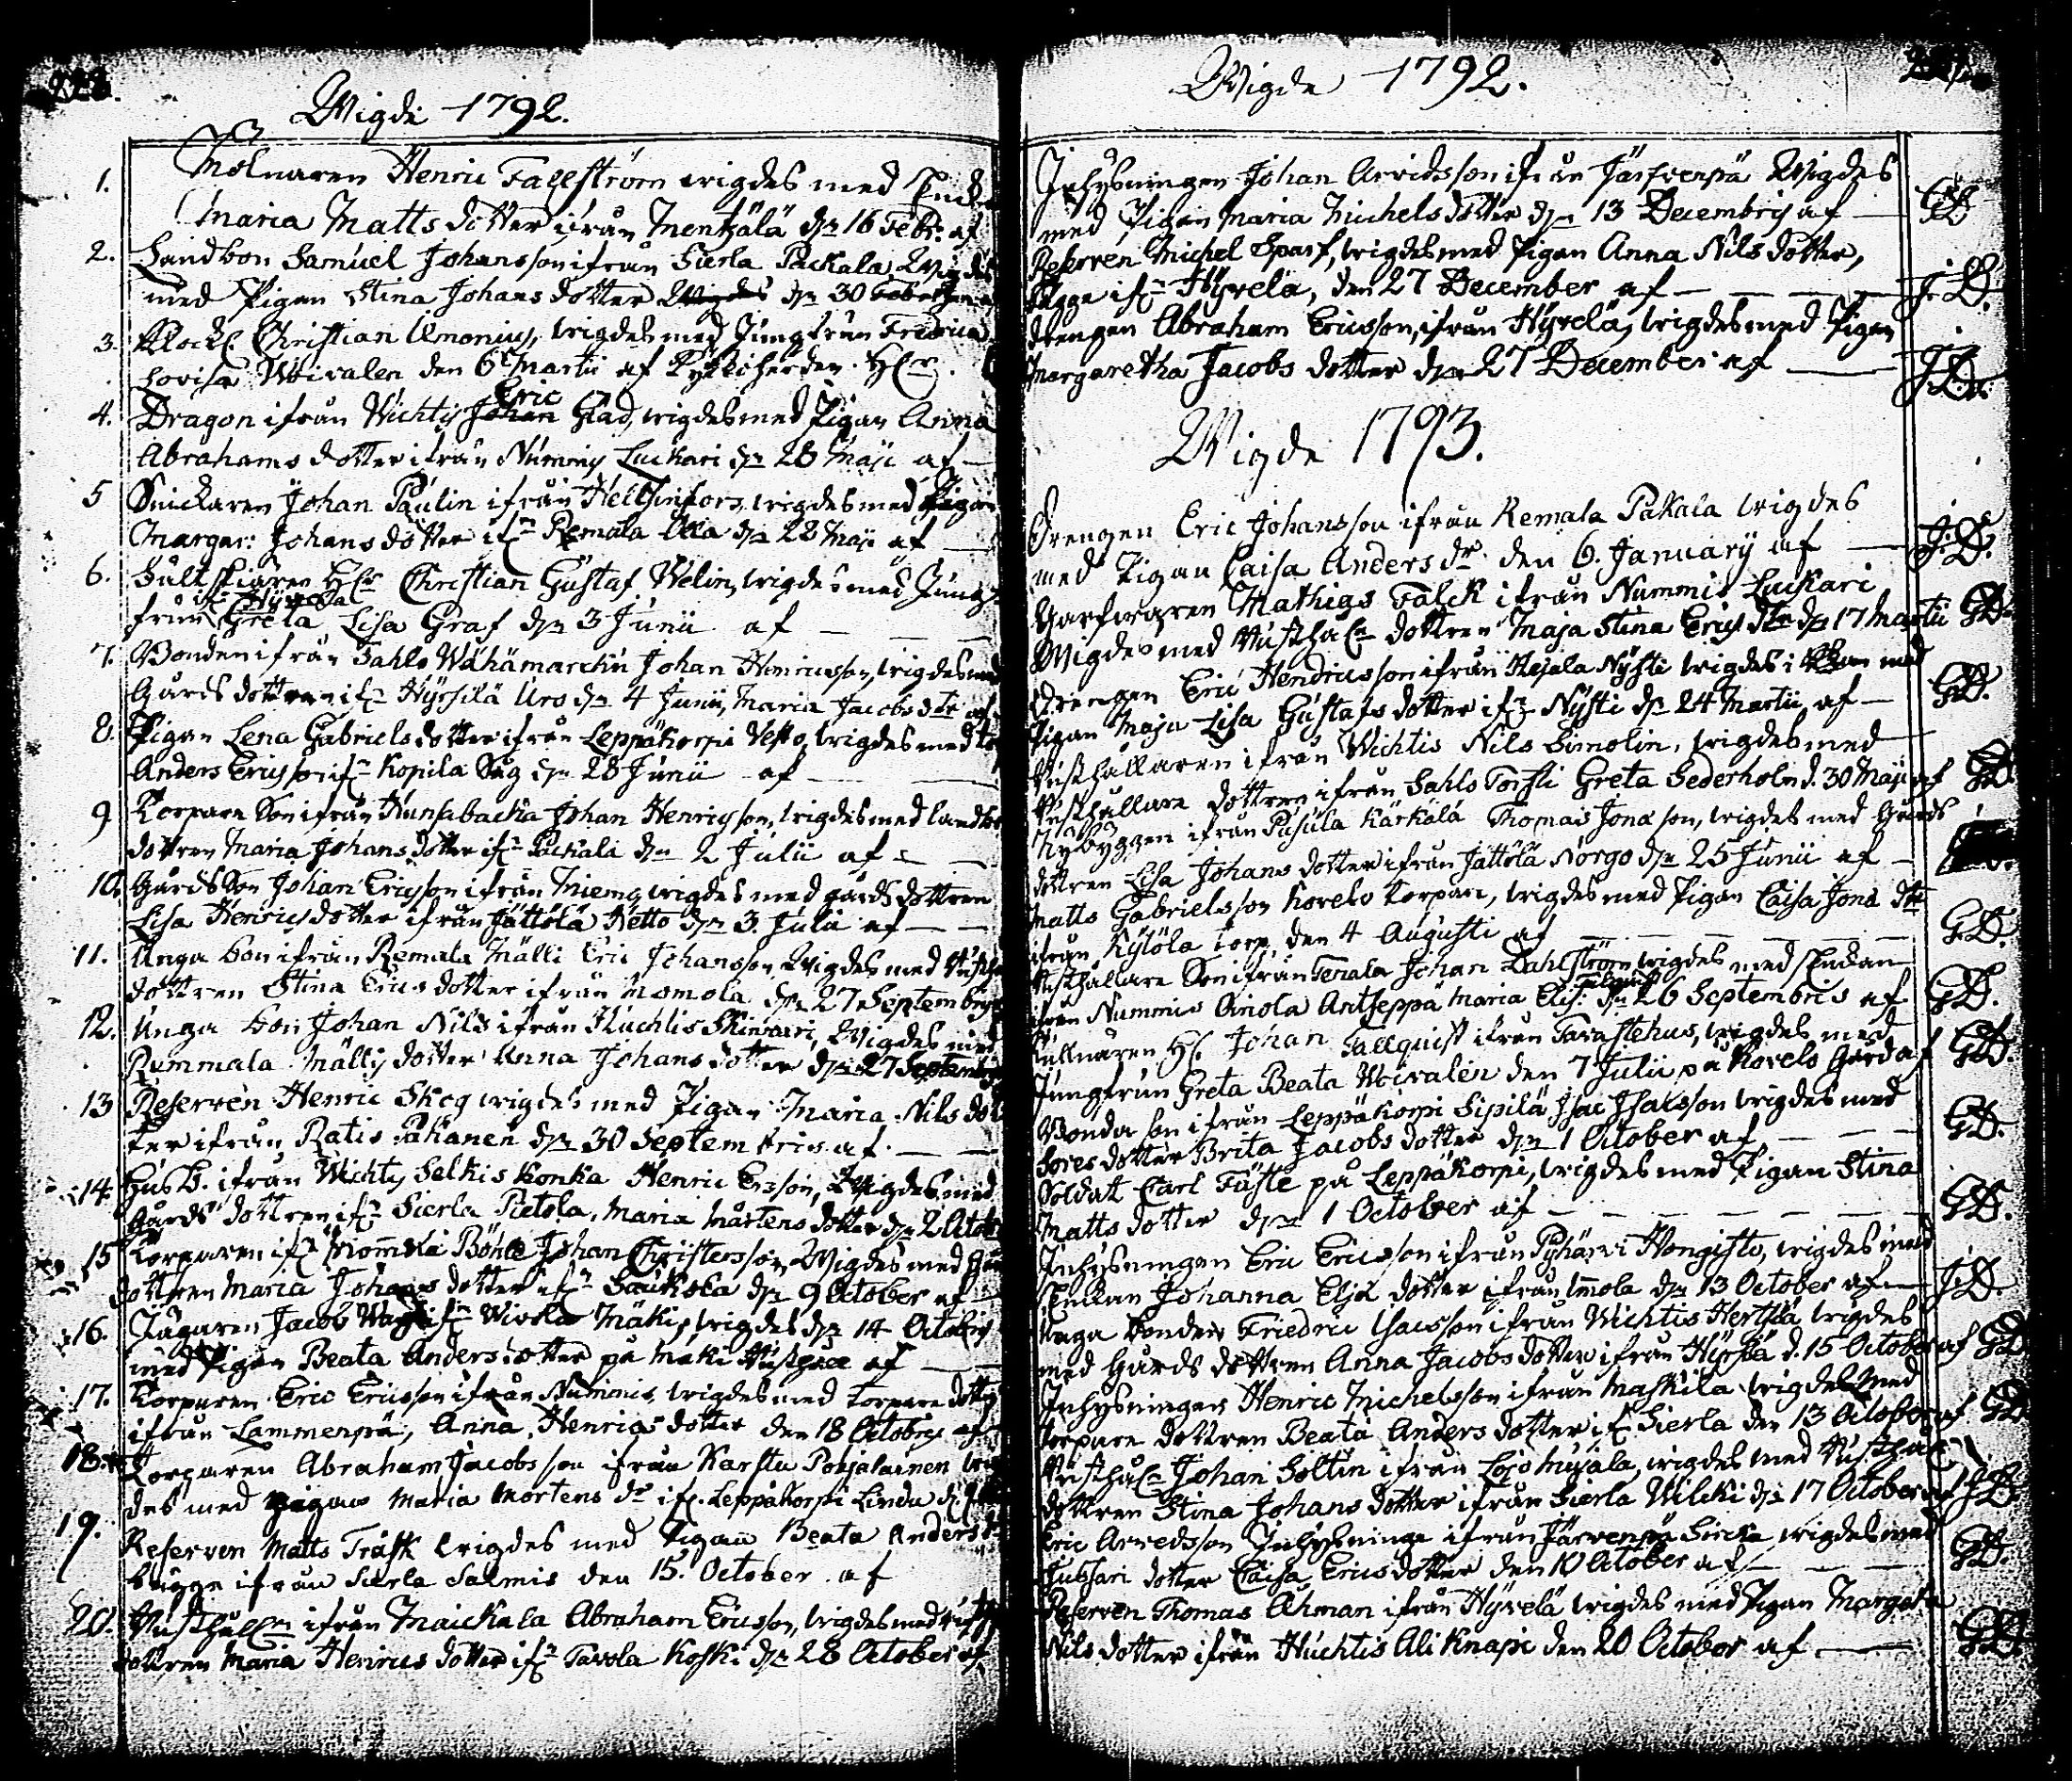 Wigde 1792.
1. Molnaren Henric Fallström wigdes med Enck
Maria Matts dotter ifrån Mentzälä dn 16 Febr: af
2. Landbon Samuel Johansson ifrån Sierla Packala Wigdes
med Pigan Stina Johans dotter Wigdes dn 30
3. Klock. Christian Amonius, wigdes med Jungfrun Fredrica
Lovisa Weivalen den 6 Martii af Kyrkoherden HCr.
Eric
4. Dragon ifrån Wichtis Johan Glad, wigdes med Pigan Anna
Abrahams dotter ifrån Nummis Luckari dn 28 Maji af
5 Snickaren Johan Paulin ifrån Hellsinfors, wigdes med Pigan
Margar: Johans dotter ifn Remala Olla dn 28 Maji af
6. HCr Christian Gustaf Welin, wigdes med Jung
ifn Hyvela
frun Greta Lisa Graf dn 3 Junii af
7. Bonden ifrån Sahlo Wähämarckü Johan Henricsson, wigdes med
Gårds dottren ifn Hyrsilä Uro dn 4 Junii, Maria Jacobs dtr af
8. Pigan Lena Gabriels dotter ifrån Leppäkorpi Vesto, wigdes med
Anders Ericsson ifn Kopila Säg dn 28 Junii af
9 Torpare Son ifrån Hunsabacka Johan Henricsson, wigdes med landbo
dottren Maria Johans dotter ifn Packala dn 2 Julii af
10. Gårds Son Johan Ericsson ifrån Niemis wigdes med gårds dottren
Lisa Henrics dotter ifrån Jättölä Netto dn 3. Julii af
11. Unga bon ifrån Remala Mälli Eric Johansson Wigdes med
dottren Stina Erics dotter ifrån Momola dn 27 Septembris
12. Unga bon Johan Nils ifrån Huchtis Skinnari, Wigdes med
Rummala Mällis dotter Anna Johans dotter dn 27 Septembris
13 Reserven Henric Skog wigdes med Pigan Maria Nils dot
ter ifrån Ratis Pakanen dn 30 Septembris af
14. Husb. ifrån Wichtis Selkis Konka Henric Ersson, Wigdes med
Gårds dottren ifn Sierla Pietola, Maria Mårtens dotter dn 2 Octob
15 Torparen ifn Mommola Böhle Johan Christersson Wigdes med
dottren Maria Johans dotter ifn Saukola dn 9 October af
16. Jägaren Jacob ifn Wiola Mäki, wigdes dn 14 Octobris
med Pigan Beata Anders dotter på Mäki af
17. Torparen Eric Ericsson ifrån Nummis wigdes med torpare dotter
ifrån Lammenpä, Anna Henrics dotter den 18 Octobris af
18. Torparen Abraham Jacobsson ifrån Karstu Pohjalainen wig
des med Pigan Maria Mortens dr ifn. Leppäkorpi Lindu
19. Reserven Matts Träsk wigdes med Pigan Beata Anders dr
bägge ifrån Sierla Salmis den 15. October af
20. Rusthålln ifrån Maickala Abraham Ericsson, wigdes med
dottren Maria Henrics dotter ifn Tavola Koski dn 28 October af
Wigde 1792.
Inhysningen Johan Arvidsson ifrån Järfvenpä Wigdes
med Pigan Maria Michels dotter dn 13 Decembris af GD
Reserven Michel Sparf, wigdes med Pigan Anna Nils dotter,
bägge ifn Hyvelä, den 27 December af J.D.
drengen Abraham Ericsson, ifrån Hyvelä, wigdes med Pigan
Margaretha Jacobs dotter dn 27 December af J.D.
Wigde 1793.
Drengen Eric Johansson ifrån Remala Pakala wigdes
med Pigan Caisa Anders dr den 6. January af J.D.
Garfvaren Mathias Falck ifrån Nummis Luckari
Wigdes med Rusthåln dottren Maja Stina Erics dtr dn 17 Martii GD.
drengen Eric Hendricsson ifrån Hejala Nysti wigdes i med
Pigan Maja Lisa Gustafs dotter ifn Nysti dn 24 Martii af GD.
Rusthållaren ifrån Wichtis Nils Limolin, wigdes med
Rusthållare dottren ifrån Sahlo Torsti Greta Sederholm d. 30 Maji af GD
Nybyggen ifrån Pusula Kärkälä Thomas Jonasson, wigdes med Gårds
dottren Lisa Johans dotter ifrån Jättölä Norgo dn 25 Junii af
Matts Gabrielsson Korelo torpare, wigdes med Pigan Caisa Jona dtr
ifrån Kylölä torp, den 4 Augusti af GD.
Rusthållare Son ifrån Tenala Johan Dahlström wigdes med Enckan
ifrån Nummis Oinola Antseppä Maria Elis: dn 26 Septembris af GD.
Tullnären H. Johan Fallquist ifrån Tavastehus, wigdes med
Jungfrun Greta Beata Weivalen den 7 Julii på Korelo Gård af GD.
Bonda son ifrån Leppäkorpi Sipilä Isac Isacsson wigdes med
Sores dotter Brita Jacobs dotter dn 1 October af GD.
Soldat Carl Fäste på Leppäkorpi, wigdes med Pigan Stina
Matts dotter dn 1 October af GD.
Inhysningen Eric Ericsson ifrån Pyhäjärvi Hongisto, wigdes med
Enckan Johanna Eliæ dotter ifrån Immola dn 13 October af J.D.
Unga bonden Friedric Isacsson ifrån Wichtis Herttså wigdes
med Gårds dottren Anna Jacobs dotter ifrån Hyrsilä d. 15 October af GD
Inhysningen Henric Michelsson ifrån Maskila wigdes med
torpare dottren Beata Anders dotter ifn Sierla den 13 October af GD
Rusthåln Johan Soltin ifrån Lojo Mujala, wigdes med Rusthåln
dottren Stina Johans dotter ifrån Sierla Wilcki dn 17 October af J.D
Eric Arvedsson Inhysninge ifrån Järvenpä wigdes med
Jussari dotter Caisa Erics dotter den 10 October af GD.
Reserven Thomas Ahman ifrån Hyvelä wigdes med Pigan Margeta
Nils dotter ifrån Huchtis Ali Knapi den 20 October af GD.